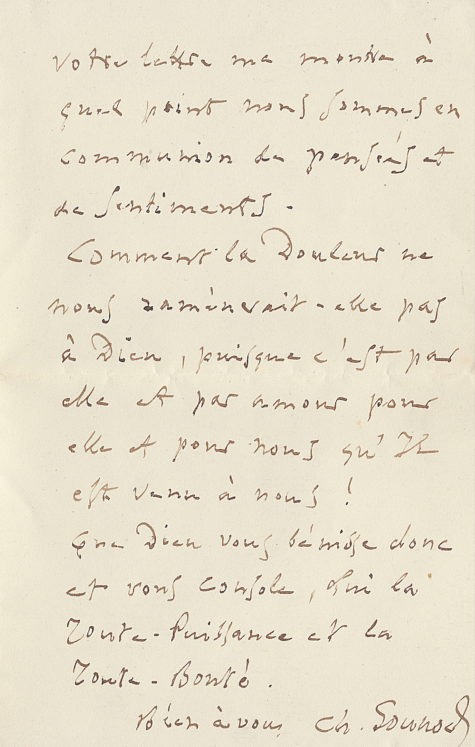 Votre lettre me montre à
quel point nous sommes en
communion de pensées et
de sentiments.
Comment la Douleur ne
nous ramènerait-elle pas
à Dieu, puisque c'est par
elle et par amour pour
elle et pour nous qu'Il
est venu à nous !
Que Dieu vous bénisse donc
et vous console, Lui la
Toute-Puissance et la
Toute-Bonté.
Bien à vous Ch. Gounod